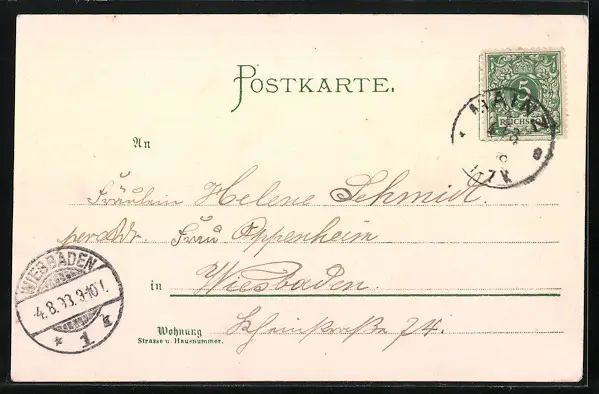 POSTKARTE.
5
REICHSPO
MAINZ
An
Fräulein Helene Schmidt.
per Adr. Frau Oppenheim
in Wiesbaden.
WIESBADEN
4.8.93. 9-10 V.
* 1
Wohnung Rheinstraße 74.
Strasse u. Hausnummer.